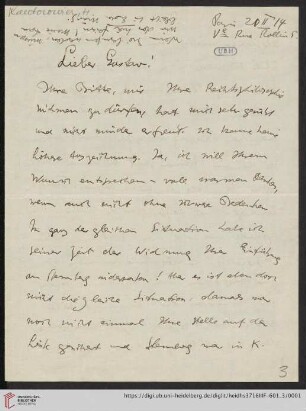 Kantorowicz, H.
Paris 20 II 14
V e Rue Rollin 5.
UBH
Lieber Gustav!
Ihre Bitte, mir Ihre Rechtsphilosophie
widmen zu dürfen, hat mich sehr gerührt
und nicht minder erfreut: ich kenne keine
höhere Auszeichnung. Ja, ich will Ihrem
Wunsch entsprechen – voll warmen
wenn auch nicht ohne schwere Bedenken
In ganz der gleichen Situation habe ich
seiner Zeit der Widmung Ihrer Einführung
an Sternberg widerraten! Aber es ist eben doch
nicht die gleiche Situation. damals war
noch nicht einmal Ihre Stelle auf der
gesichert und Sternberg war in K.
3
https://digi.ub.uni-heidelberg.de/diglit/heidhs3716IIIF-601_3/0001